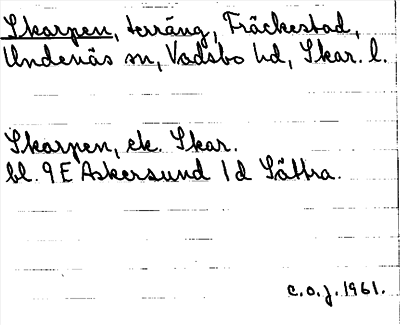 Skarpen, terräng, Träckestad,
Undenäs sn, Vadsbo hd, Skar. l.
Skarpen, ek. Skar.
bl. 9 E Askersund 1 d Sättra.
c.o.j. 1961.